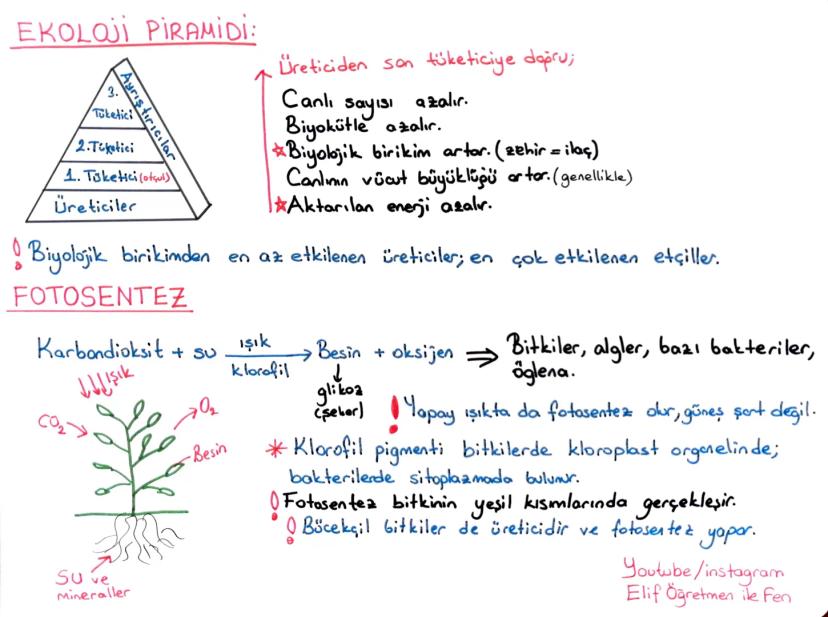 EKOLOJİ PİRAMİDİ:
Üreticiden son tüketiciye doğru;
3.
Tüketici
Ayrıştırıcılar
2.Tüketici
1. Tüketici (otçul)
Üreticiler
Canlı sayısı azalır.
Biyokütle azalır.
*Biyolojik birikim artar. (zehir = ilaç)
Canlının vücut büyüklüğü artar. (genellikle)
*Aktarılan enerji azalır.
! Biyolojik birikimden en az etkilenen üreticiler; en çok etkilenen etçiller.
FOTOSENTEZ
Karbondioksit + su ışık klorofil → Besin + oksijen ⇒ Bitkiler, algler, bazı bakteriler,
öglena.
↓
glikoz
(şeker)
! Yapay ışıkta da fotosentez olur, güneş şart değil.
* Klorofil pigmenti bitkilerde kloroplast organelinde;
bakterilerde sitoplazmada bulunur.
! Fotosentez bitkinin yeşil kısımlarında gerçekleşir.
! Böcekçil bitkiler de üreticidir ve fotosentez yapar.
Işık
CO2
O2
Besin
Su ve
mineraller
Youtube/instagram
Elif Öğretmen ile Fen